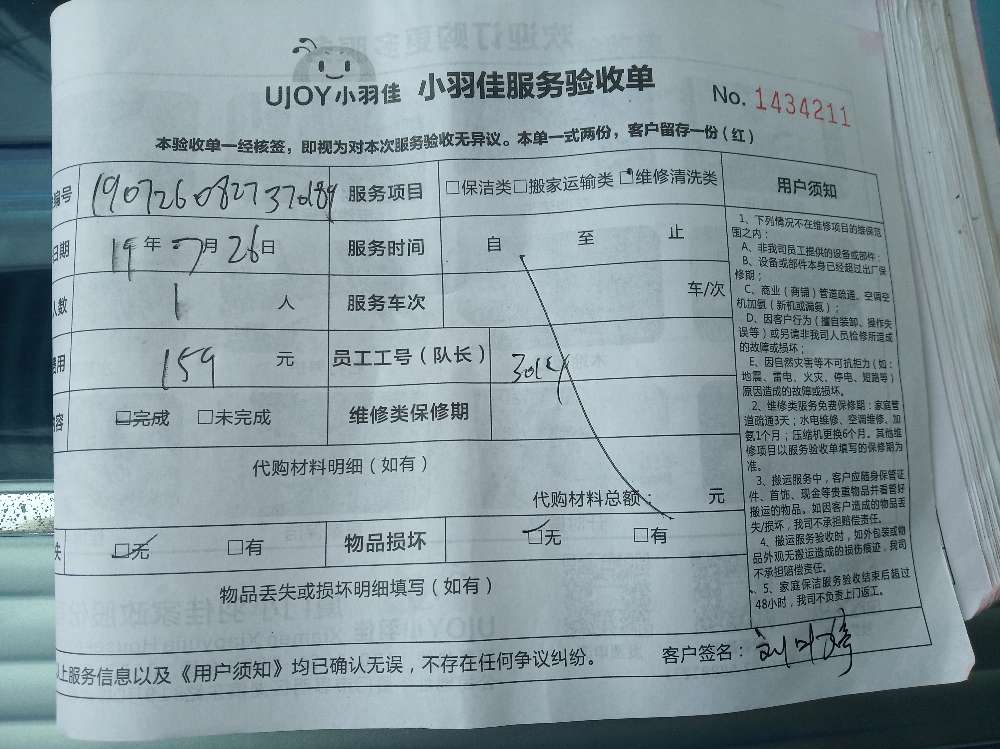 UJOY小羽佳 小羽佳服务验收单 No. 1434211
本验收单一经核签，即视为对本次服务验收无异议。本单一式两份，客户留存一份（红）
编号 190726082737689 服务项目 □保洁类□搬家运输类□维修清洗类
日期 19年7月26日 服务时间 自 至 止
人数 1 人 服务车次 车/次
费用 159 元 员工工号（队长）
内容 □完成 □未完成 维修类保修期
代购材料明细（如有）
代购材料总额： 元
失 □无 □有 物品损坏 □无 □有
物品丢失或损坏明细填写（如有）
以上服务信息以及《用户须知》均已确认无误，不存在任何争议纠纷。 客户签名：
用户须知
1、下列情况不在维修项目的维保范
围之内：
A、非我司员工提供的设备或部件；
B、设备或部件本身已经超过出厂保
修期；
C、商业（商铺）管道疏通、空调空
机加氨（新机或漏氨）；
D、因客户行为（擅自装卸、操作失
误等）或另请非我司人员检修所造成
的故障或损坏；
E、因自然灾害等不可抗拒力（如：
地震、雷电、火灾、停电、短路等）
原因造成的故障或损坏。
2、维修类服务免费保修期：家庭管
道疏通3天；水电维修、空调维修、加
氨1个月；压缩机更换6个月。其他维
修项目以服务验收单填写的保修期为
准。
3、搬运服务中，客户应随身保管证
件、首饰、现金等贵重物品并看管好
搬运的物品。如因客户造成的物品丢
失/损坏，我司不承担赔偿责任。
4、搬运服务验收时，如外包装或物
品外观无搬运造成的损伤痕迹，我司
不承担赔偿责任。
5、家庭保洁服务验收结束后超过
48小时，我司不负责上门返工。